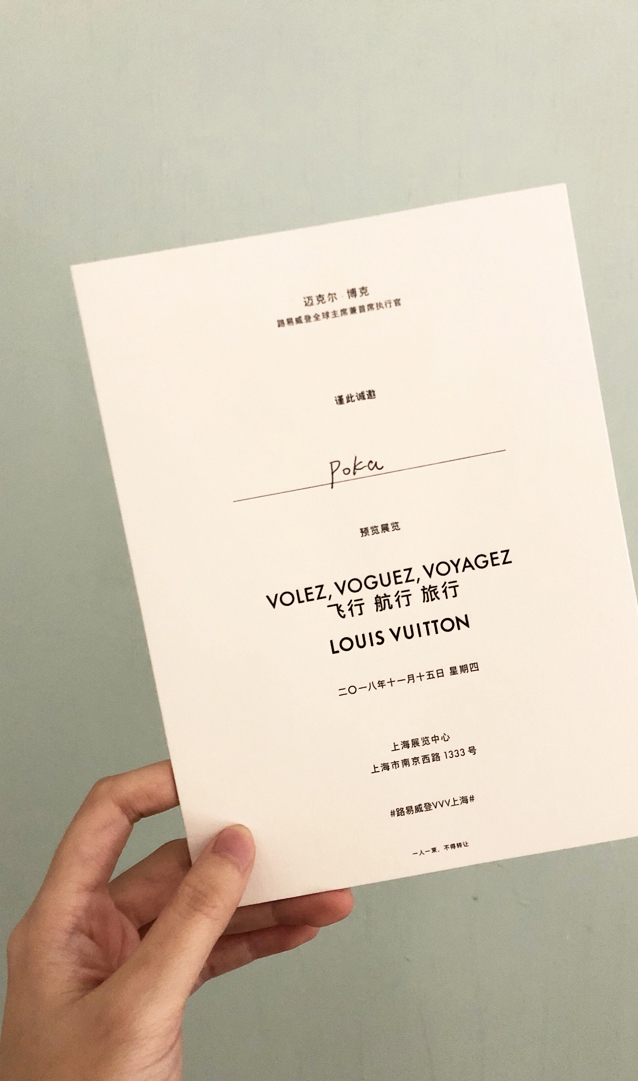 迈克尔·博克
路易威登全球主席兼首席执行官
谨此诚邀
Poka
预览展览
VOLEZ, VOGUEZ, VOYAGEZ
飞行 航行 旅行
LOUIS VUITTON
二〇一八年十一月十五日 星期四
上海展览中心
上海市南京西路 1333 号
#路易威登VVV上海#
一人一柬，不得转让